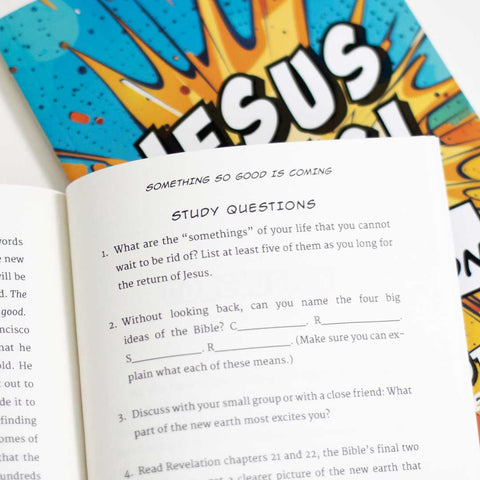 JESUS
SOMETHING SO GOOD IS COMING
STUDY QUESTIONS
1. What are the “somethings” of your life that you cannot
wait to be rid of? List at least five of them as you long for
the return of Jesus.
2. Without looking back, can you name the four big
ideas of the Bible? C__________. R__________.
S__________. R__________. (Make sure you can ex-
plain what each of these means.)
3. Discuss with your small group or with a close friend: What
part of the new earth most excites you?
4. Read Revelation chapters 21 and 22, the Bible’s final two
get a clearer picture of the new earth that
new
will be
d. The
good.
ncisco
hat he
old. He
out to
de it to
finding
omes of
hundreds